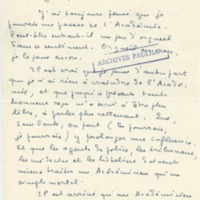 J'ai toujours pensé que je
pourrais me passer de l'Académie.
Peut-être entrait-il un peu d'orgueil
dans ce sentiment. Orgueil
je le jure encore.
ARCHIVES PAULHAN
Il est vrai que d'autre part
que je n'ai rien à craindre de l'Acadé-
mie, et que jusqu'à présent tous les
honneurs reçus m'ont servi à être plus
libre, à parler plus nettement. Que,
sans doute, on peut (tu pourrais,
je pourrais) y prolonger une influence.
Et que les agents de police, les tribunaux,
les médecins et les hôteliers doivent
mieux traiter un Académicien qu'un
simple mortel.
Il est arrivé qu'un Académicien